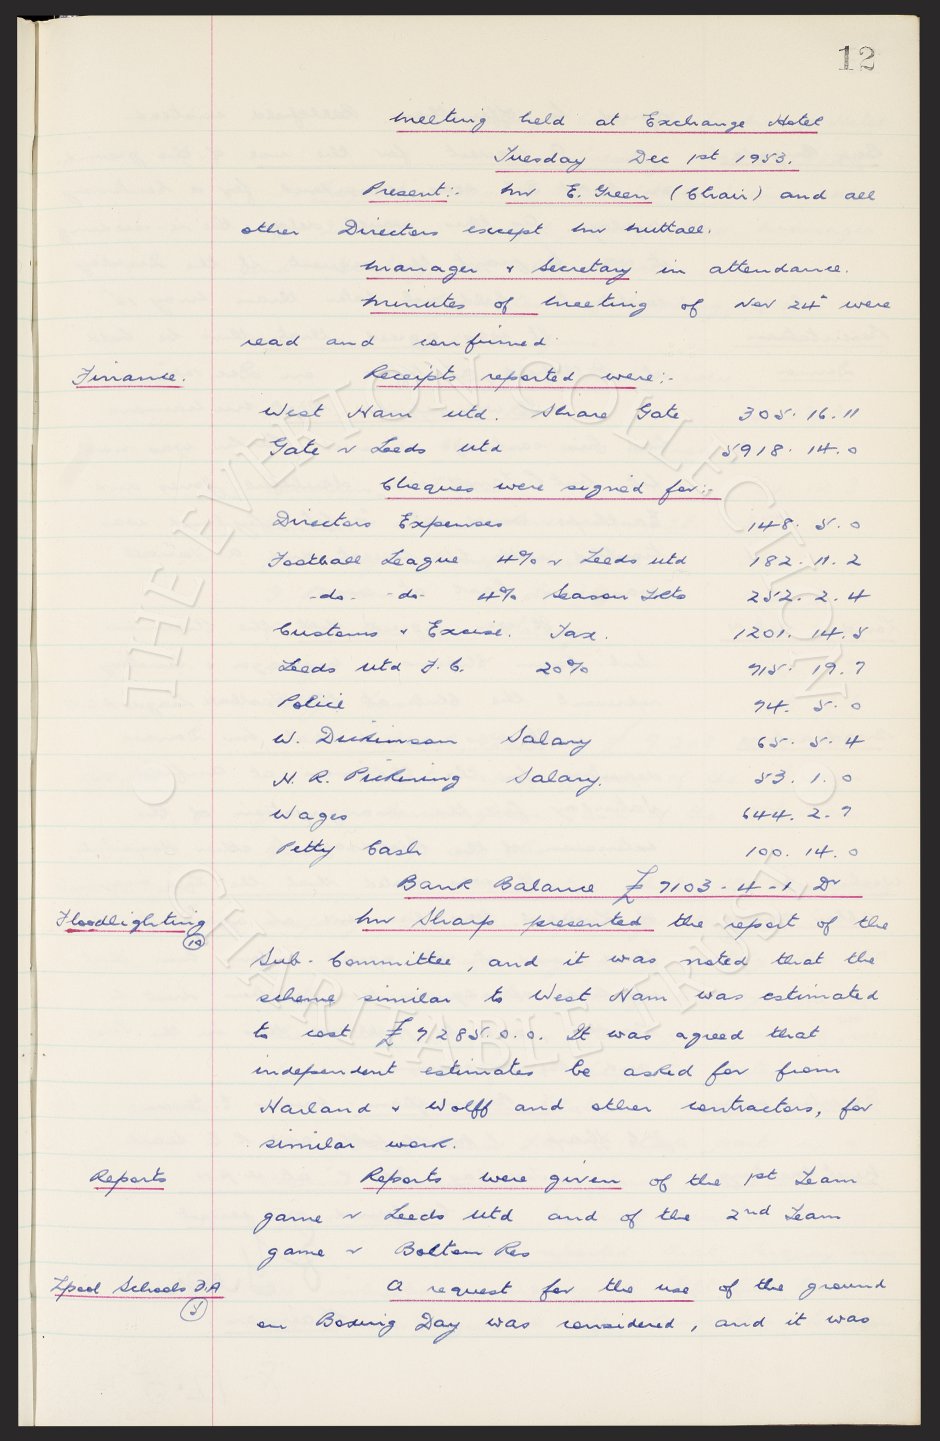 12
Meeting held at Exchange Hotel
Tuesday Dec 1st 1953.
Present:- Mr E. Green (Chair) and all
other Directors except Mr Nuttall.
Manager & Secretary in attendance.
Minutes of Meeting of Nov 24th were
read and confirmed.
Finance. Receipts reported were:-
West Ham Utd. Share Gate 305. 16. 11
Gate v Leeds Utd 5918. 14. 0
Cheques were signed for:-
Directors Expenses 148. 5. 0
Football League 4% v Leeds Utd 182. 11. 2
-do- -do- 4% Season Tkts 252. 2. 4
Customs & Excise. Tax. 1201. 14. 5
Leeds Utd F.C. 20% 915. 19. 7
Police 74. 5. 0
W. Dickinson Salary 65. 5. 4
H. R. Pickering Salary. 53. 1. 0
Wages 644. 2. 7
Petty Cash 100. 14. 0
Bank Balance £7103-4-1 Dr
Floodlighting Mr Sharp presented the report of the
10 Sub-Committee, and it was noted that the
scheme similar to West Ham was estimated
to cost £7285. 0. 0. It was agreed that
independent estimates be asked for from
Harland & Wolff and other contractors, for
similar work.
Reports Reports were given of the 1st Team
game v Leeds Utd and of the 2nd Team
game v Bolton Res
Lpool Schools F.A A request for the use of the ground
5 on Boxing Day was considered, and it was
THE EVERTON COLLECTION
CHARITABLE TRUST